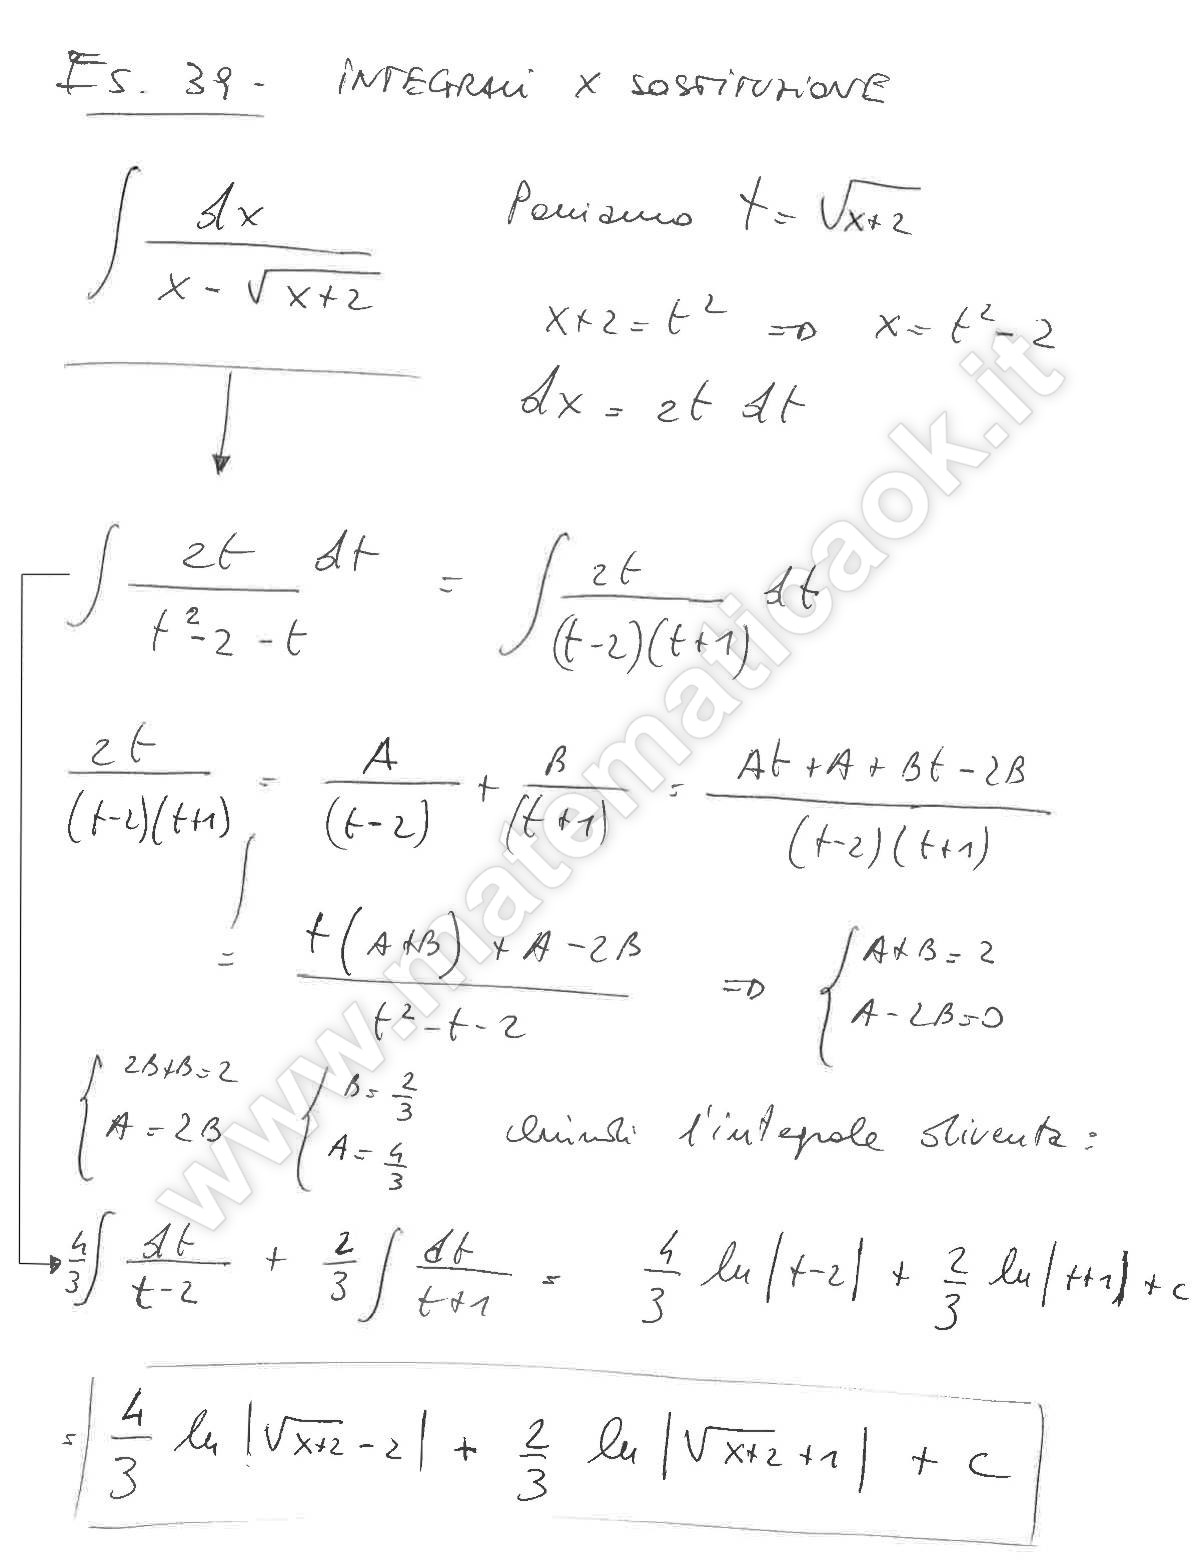 Es. 39 - INTEGRALI X SOSTITUZIONE
∫ dx / (x - √(x+2))   Poniamo t = √(x+2)
x+2 = t² => x = t² - 2
dx = 2t dt
∫ 2t / (t² - 2 - t) dt = ∫ 2t / ((t-2)(t+1)) dt
2t / ((t-2)(t+1)) = A / (t-2) + B / (t+1) = (At + A + Bt - 2B) / ((t-2)(t+1))
= (t(A+B) + A - 2B) / (t² - t - 2) => { A+B = 2
A - 2B = 0
{ 2B+B = 2   { B = 2/3
A = 2B   A = 4/3   Quindi l'integrale diventa:
4/3 ∫ dt / (t-2) + 2/3 ∫ dt / (t+1) = 4/3 ln|t-2| + 2/3 ln|t+1| + c
= 4/3 ln|√(x+2) - 2| + 2/3 ln|√(x+2) + 1| + c
www.matematicaok.it